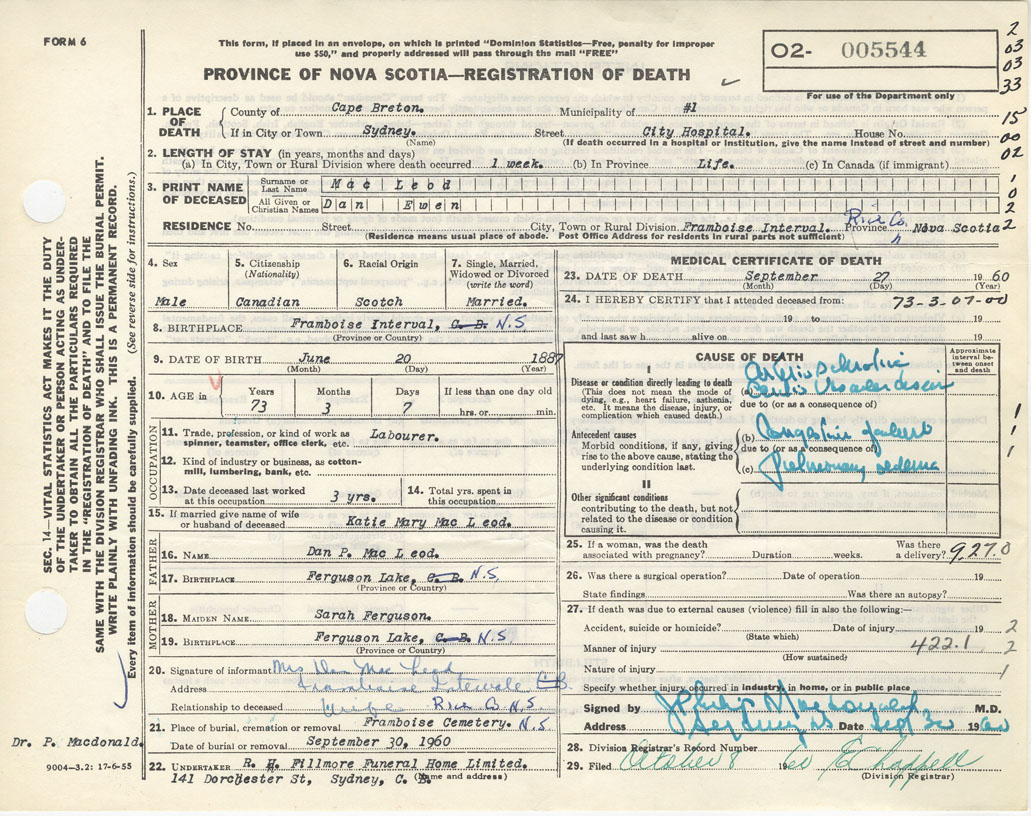 FORM 6
This form, if placed in an envelope, on which is printed "Dominion Statistics—Free, penalty for improper
use $50," and properly addressed will pass through the mail "FREE"
PROVINCE OF NOVA SCOTIA—REGISTRATION OF DEATH
02- 005544
For use of the Department only
2
03
03
33
15
00
02
1
0
2
2
1. PLACE OF DEATH
County of Cape Breton. Municipality of #1
If in City or Town Sydney. Street City Hospital. House No.
(Name) (If death occurred in a hospital or institution, give the name instead of street and number)
2. LENGTH OF STAY (in years, months and days)
(a) In City, Town or Rural Division where death occurred 1 week. (b) In Province Life. (c) In Canada (if immigrant)
3. PRINT NAME OF DECEASED
Surname or Last Name Mac Leod
All Given or Christian Names Dan Ewen
RESIDENCE No. Street City, Town or Rural Division Framboise Interval. Province Nova Scotia
Rich Co.
(Residence means usual place of abode. Post Office Address for residents in rural parts not sufficient)
4. Sex
Male
5. Citizenship
(Nationality)
Canadian
6. Racial Origin
Scotch
7. Single, Married, Widowed or Divorced
(write the word)
Married.
8. BIRTHPLACE Framboise Interval, C. B. N.S
(Province or Country)
9. DATE OF BIRTH June 20 1887
(Month) (Day) (Year)
10. AGE in
Years 73
Months 3
Days 7
If less than one day old
hrs. or min.
OCCUPATION
11. Trade, profession, or kind of work as Labourer.
spinner, teamster, office clerk, etc.
12. Kind of industry or business, as cotton-
mill, lumbering, bank, etc.
13. Date deceased last worked
at this occupation 3 yrs.
14. Total yrs. spent in
this occupation
15. If married give name of wife
or husband of deceased Katie Mary Mac Leod.
FATHER
16. NAME Dan P. Mac Leod.
17. BIRTHPLACE Ferguson Lake, C. B. N.S
(Province or Country)
MOTHER
18. MAIDEN NAME Sarah Ferguson.
19. BIRTHPLACE Ferguson Lake, C. B. N.S
(Province or Country)
20. Signature of informant Mrs Dan Mac Leod
Address Framboise Intervale C B.
Relationship to deceased Wife Rich Co N.S.
21. Place of burial, cremation or removal Framboise Cemetery. N.S
Date of burial or removal September 30, 1960
22. UNDERTAKER R. H. Fillmore Funeral Home Limited.
141 Dorchester St, Sydney, C. B.
(Name and address)
MEDICAL CERTIFICATE OF DEATH
23. DATE OF DEATH September 27 1960
(Month) (Day) (Year)
24. I HEREBY CERTIFY that I attended deceased from:
73-3-07-00
19 to 19
and last saw h alive on 19
CAUSE OF DEATH
Approximate interval between onset and death
I
Disease or condition directly leading to death
(This does not mean the mode of
dying, e.g., heart failure, asthenia,
etc. It means the disease, injury, or
complication which caused death.)
(a)
due to (or as a consequence of)
Antecedent causes
Morbid conditions, if any, giving
rise to the above cause, stating the
underlying condition last.
(b)
due to (or as a consequence of)
(c) Pulmonary oedema
II
Other significant conditions
contributing to the death, but not
related to the disease or condition
causing it.
1
1
1
25. If a woman, was the death
associated with pregnancy? Duration weeks. Was there a delivery?
927.0
26. Was there a surgical operation? Date of operation 19
State findings Was there an autopsy?
27. If death was due to external causes (violence) fill in also the following:—
Accident, suicide or homicide? Date of injury 19
(State which)
Manner of injury 422.1
(How sustained)
Nature of injury
Specify whether injury occurred in industry, in home, or in public place
2
2
1
Signed by M.D.
Address Sydney NS Date Sept 30 1960
28. Division Registrar's Record Number
29. Filed October 8 1960
(Division Registrar)
SEC. 14—VITAL STATISTICS ACT MAKES IT THE DUTY
OF THE UNDERTAKER OR PERSON ACTING AS UNDER-
TAKER TO OBTAIN ALL THE PARTICULARS REQUIRED
IN THE "REGISTRATION OF DEATH" AND TO FILE THE
SAME WITH THE DIVISION REGISTRAR WHO SHALL ISSUE THE BURIAL PERMIT.
WRITE PLAINLY WITH UNFADING INK. THIS IS A PERMANENT RECORD.
Every item of information should be carefully supplied. (See reverse side for instructions.)
Dr. P. Macdonald.
9004-3.2: 17-6-55